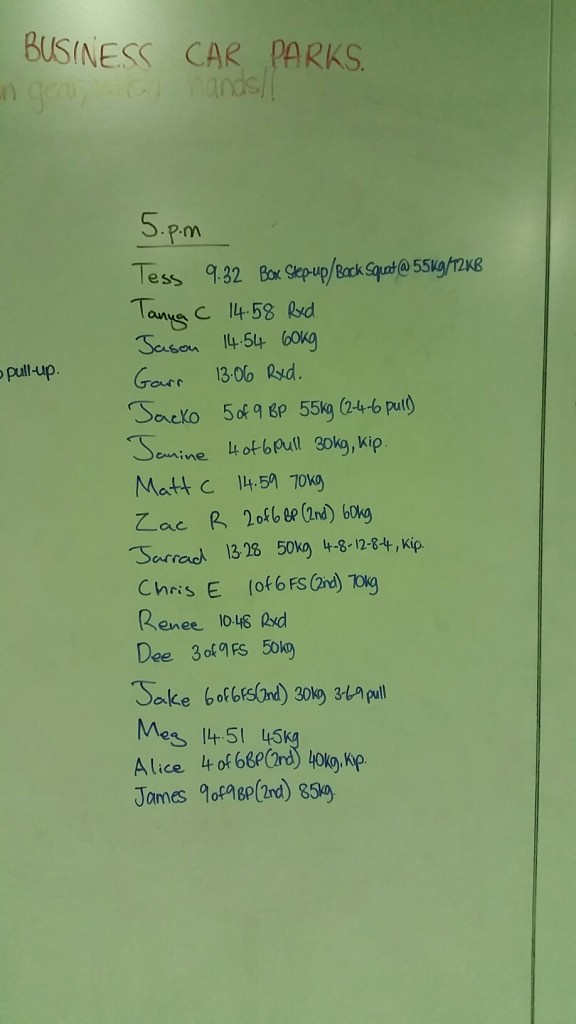 BUSINESS CAR PARKS.
hands!!
5.p.m
Tess 9.32 Box Step-up/Back Squat@55kg/12KB
Tanya C 14.58 Rxd
Jason 14.54 60kg
pull-up.
Garr 13.06 Rxd.
Jacko 5 of 9 BP 55kg (2-4-6 pull)
Janine 4 of 6 pull 30kg, Kip.
Matt C 14.59 70kg
Zac R 2 of 6 BP (2nd) 60kg
Jarrad 13.28 50kg 4-8-12-8-4, Kip.
Chris E 1 of 6 FS (2nd) 70kg
Renee 10.48 Rxd
Dee 3 of 9 FS 50kg
Jake 6 of 6 FS (2nd) 30kg 3-6-9 pull
Meg 14.51 45kg
Alice 4 of 6 BP (2nd) 40kg, Kip.
James 9 of 9 BP (2nd) 85kg.